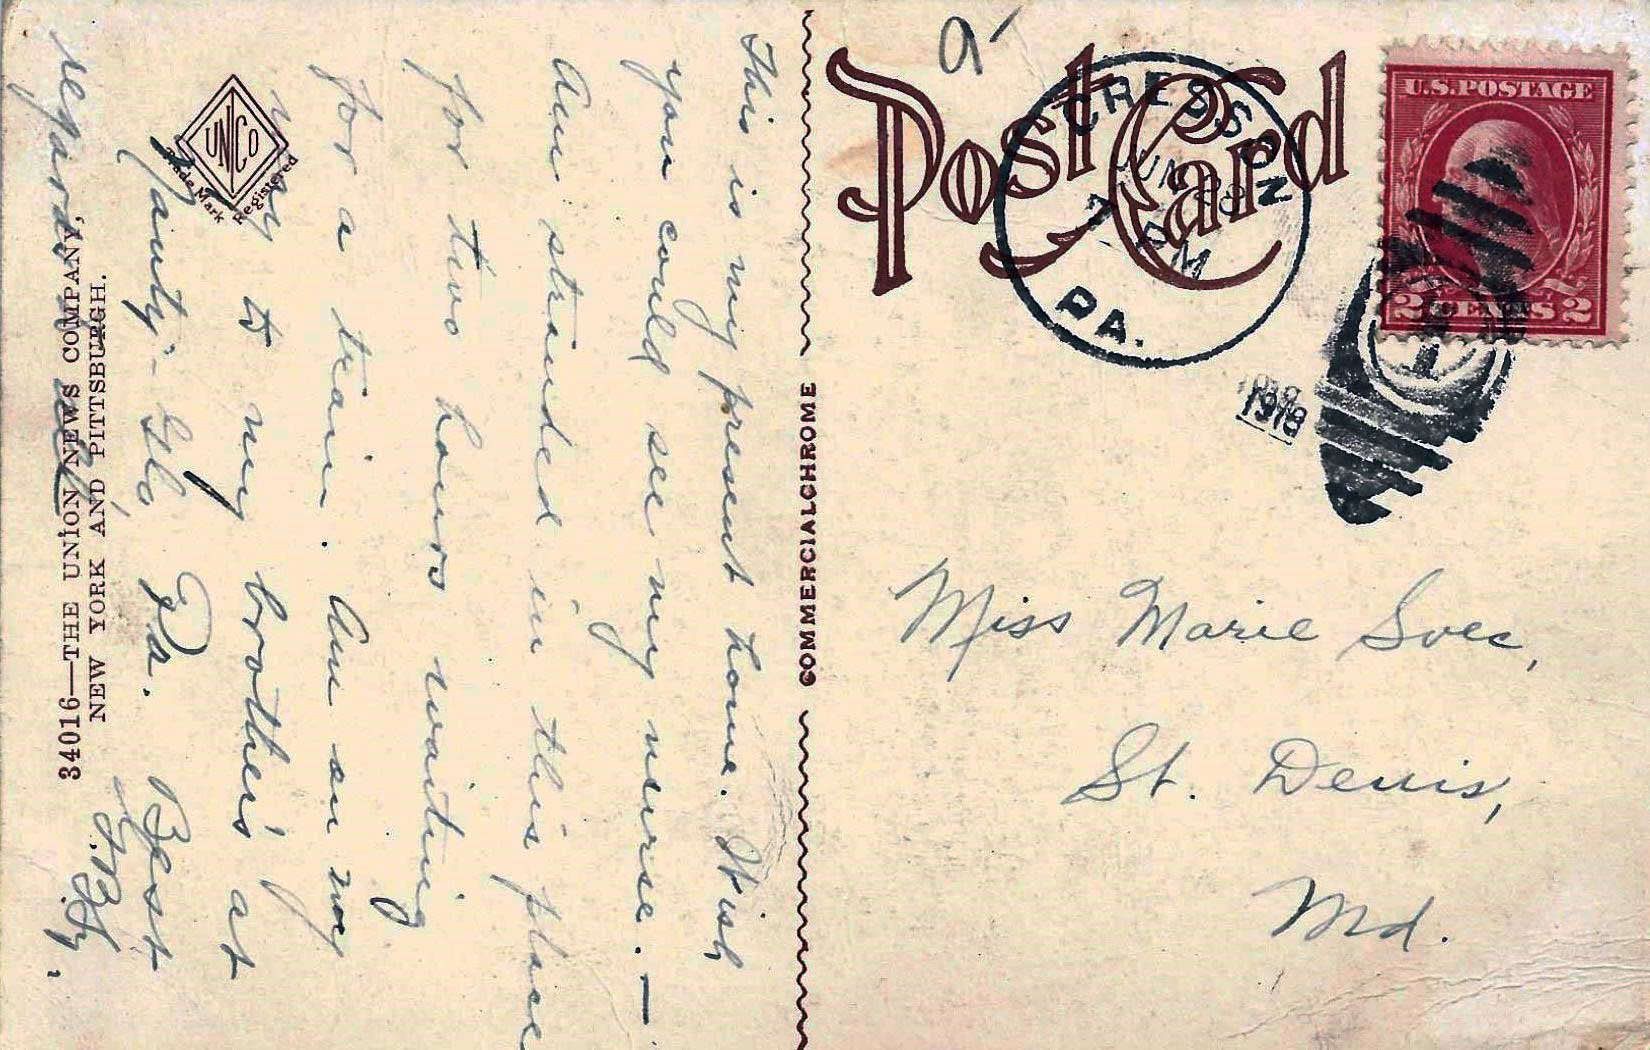 This is my present home. Wish
you could see my nurse. —
Am stranded in this place
for two hours waiting
for a train. Am on my
way to my brother's at
Best
regards
Post Card
a
CRESSON
JUN 28
7 PM
PA.
1918
U.S. POSTAGE
2 CENTS 2
Miss Marie
St. Denis,
Md.
COMMERCIALCHROME
UNICO
Trade Mark Registered
34016—THE UNION NEWS COMPANY,
NEW YORK AND PITTSBURGH.